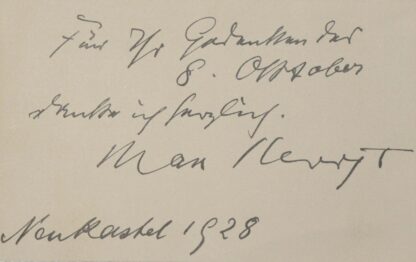 Für Ihr Gedenken des
8. Oktober
danke ich herzlich.
Max Slevogt
Neukastel 1928